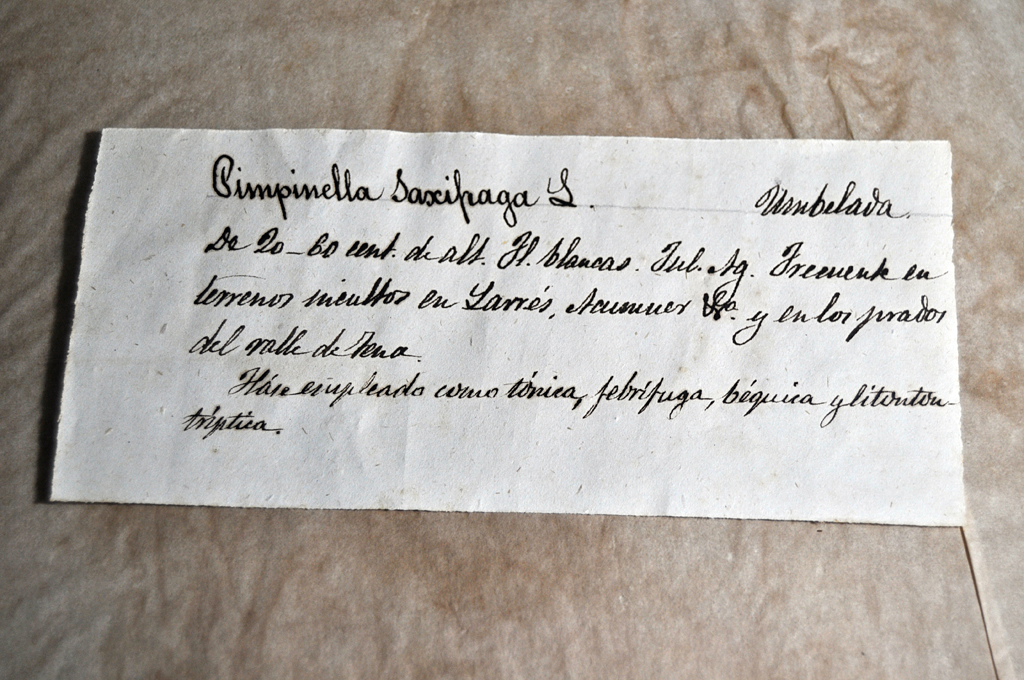 Pimpinella Saxifraga L. Umbelada.
De 20-60 cent. de alt. Fl. blancas. Jul. Ag. Frecuente en
terrenos incultos en Larrés, Acumuer &a. y en los prados
del valle de Tena.
Háse empleado como tónica, febrífuga, béquica y litonton-
tríptica.